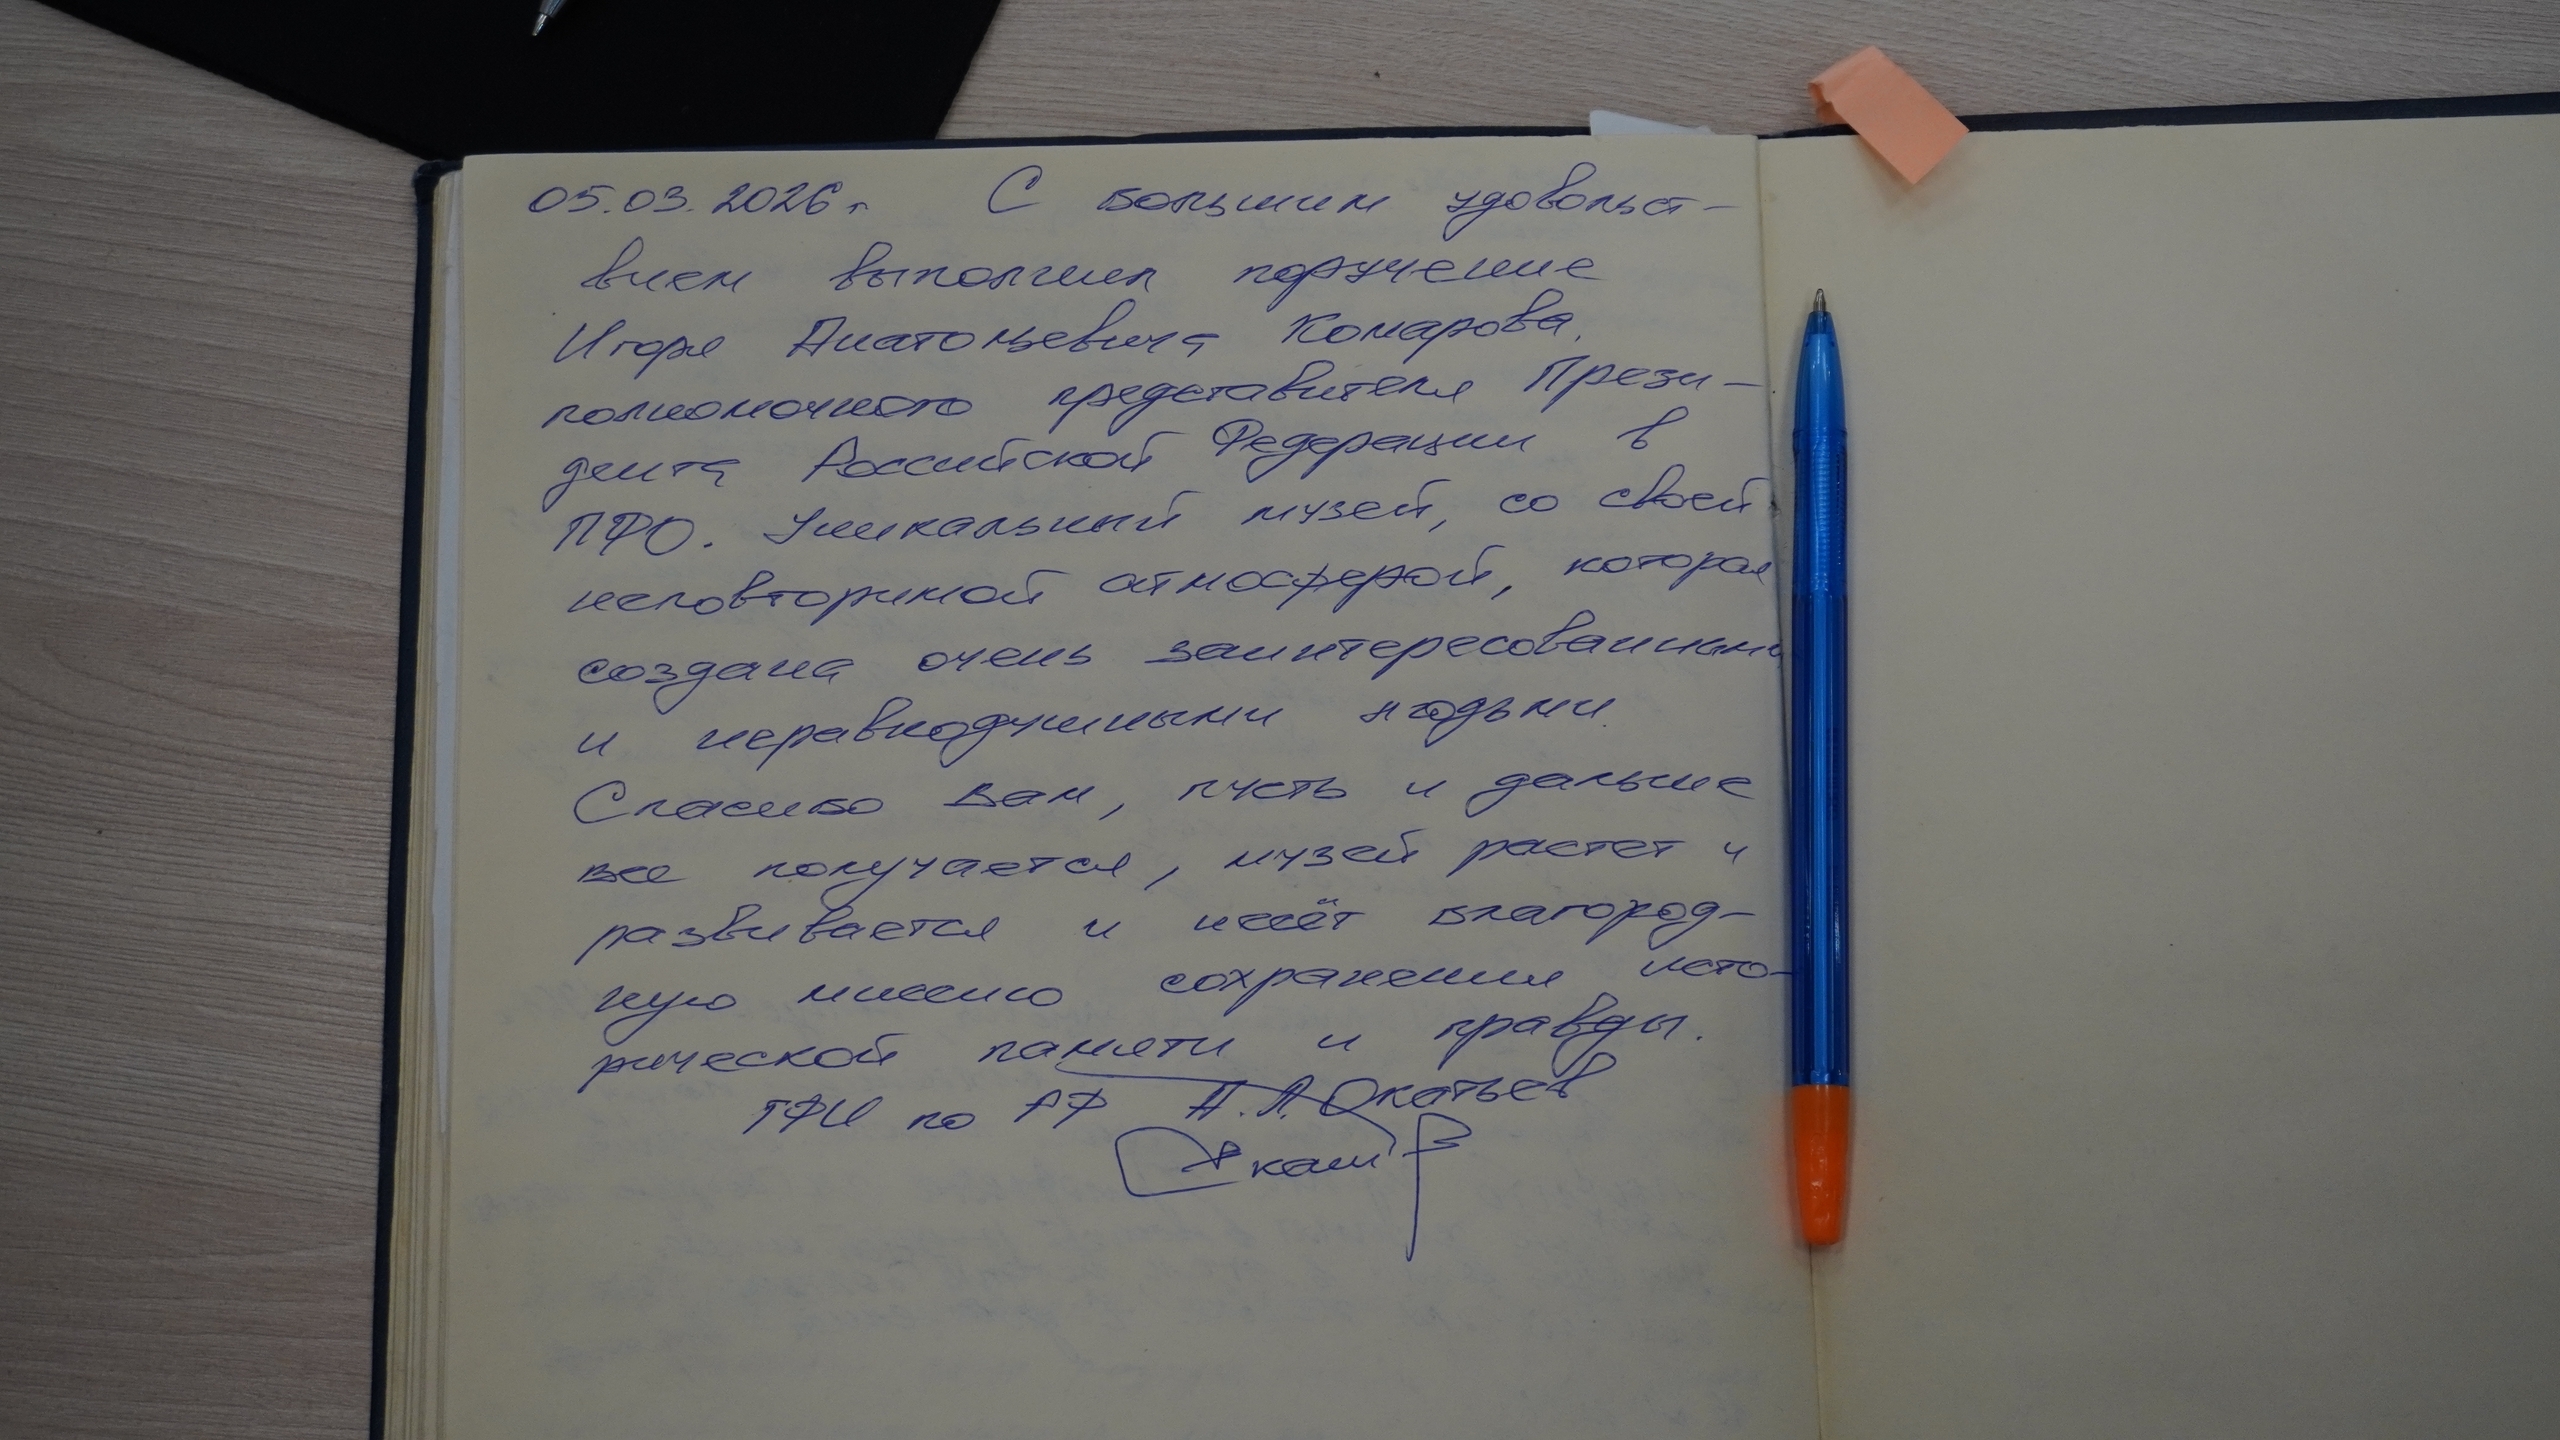 05.03.2026 г. С большим удовольст-
вием выполнил поручение
Игоря Анатольевича Комарова,
полномочного представителя Прези-
дента Российской Федерации в
ПФО. Уникальный музей, со своей
неповторимой атмосферой, которая
создана очень заинтересованными
и неравнодушными людьми.
Спасибо Вам, пусть и дальше
все получается, музей растет и
развивается и несёт благород-
ную миссию сохранения исто-
рической памяти и правды.
ГФИ по РФ П.А. Окатьев